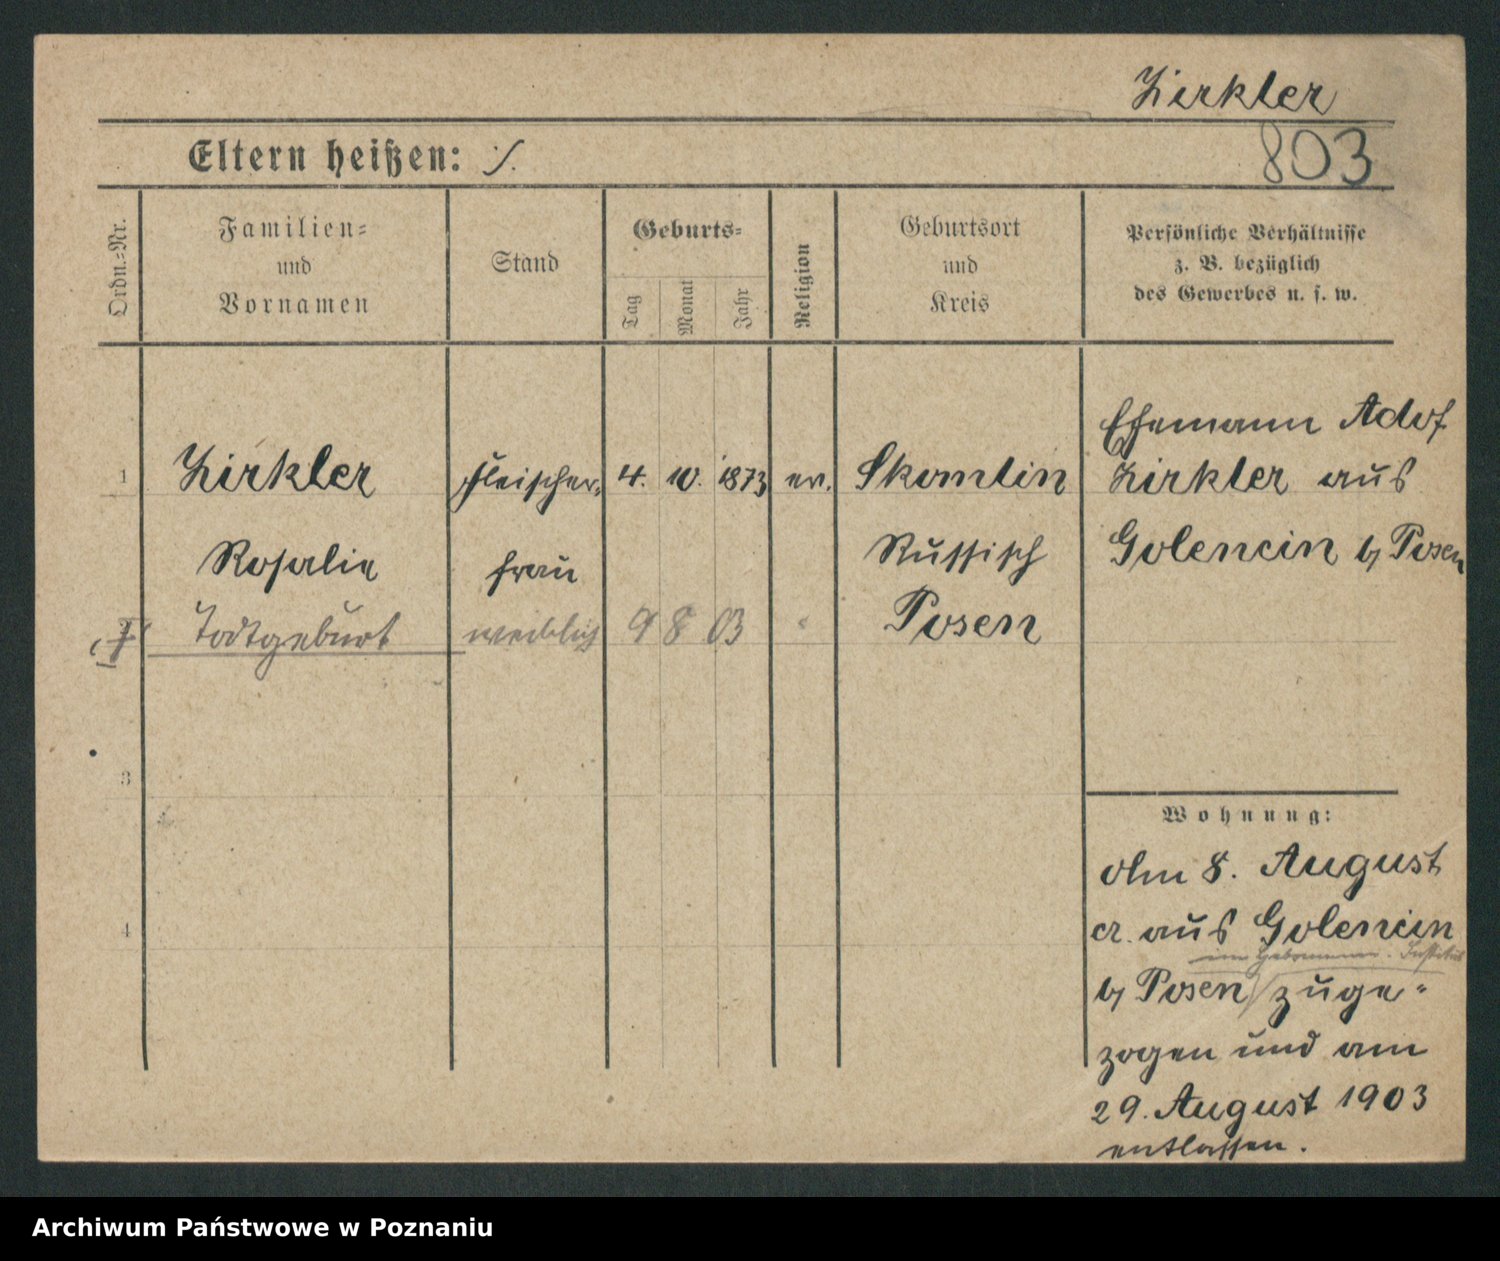 Zirkler
803
Eltern heißen: ./.
Ordn.-Nr.
Familien-
und
Vornamen
Stand
Geburts-
Tag
Monat
Jahr
Religion
Geburtsort
und
Kreis
Persönliche Verhältnisse
z. B. bezüglich
des Gewerbes u. s. w.
1
Zirkler
Rosalie
Fleischer-
frau
4. 10. 1873
ev.
Skomlin
Russisch
Posen
Ehemann Adolf
Zirkler aus
Golencin b/ Posen
2
Todtgeburt
weiblich
9 8 03
3
4
Wohnung:
Am 8. August
cr. aus Golencin
im Hebammen-Institut
b/ Posen zuge-
zogen und am
29. August 1903
entlassen.
Archiwum Państwowe w Poznaniu